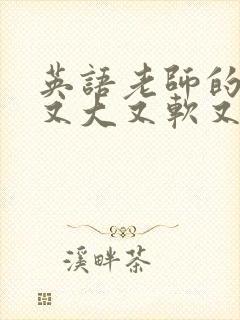 英語老師的
又大又軟又
溪畔茶